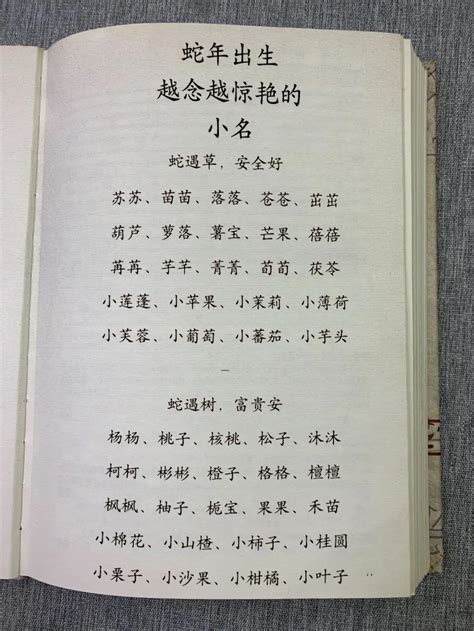 蛇年出生
越念越惊艳的
小名
蛇遇草，安全好
苏苏、苗苗、落落、苍苍、茁茁
葫芦、萝落、薯宝、芒果、蓓蓓
苒苒、芋芊、菁菁、荀荀、茯苓
小莲蓬、小苹果、小茉莉、小薄荷
小芙蓉、小葡萄、小蕃茄、小芋头
—
蛇遇树，富贵安
杨杨、桃子、核桃、松子、沐沐
柯柯、彬彬、橙子、格格、檀檀
枫枫、柚子、栀宝、果果、禾苗
小棉花、小山楂、小柿子、小桂圆
小栗子、小沙果、小柑橘、小叶子